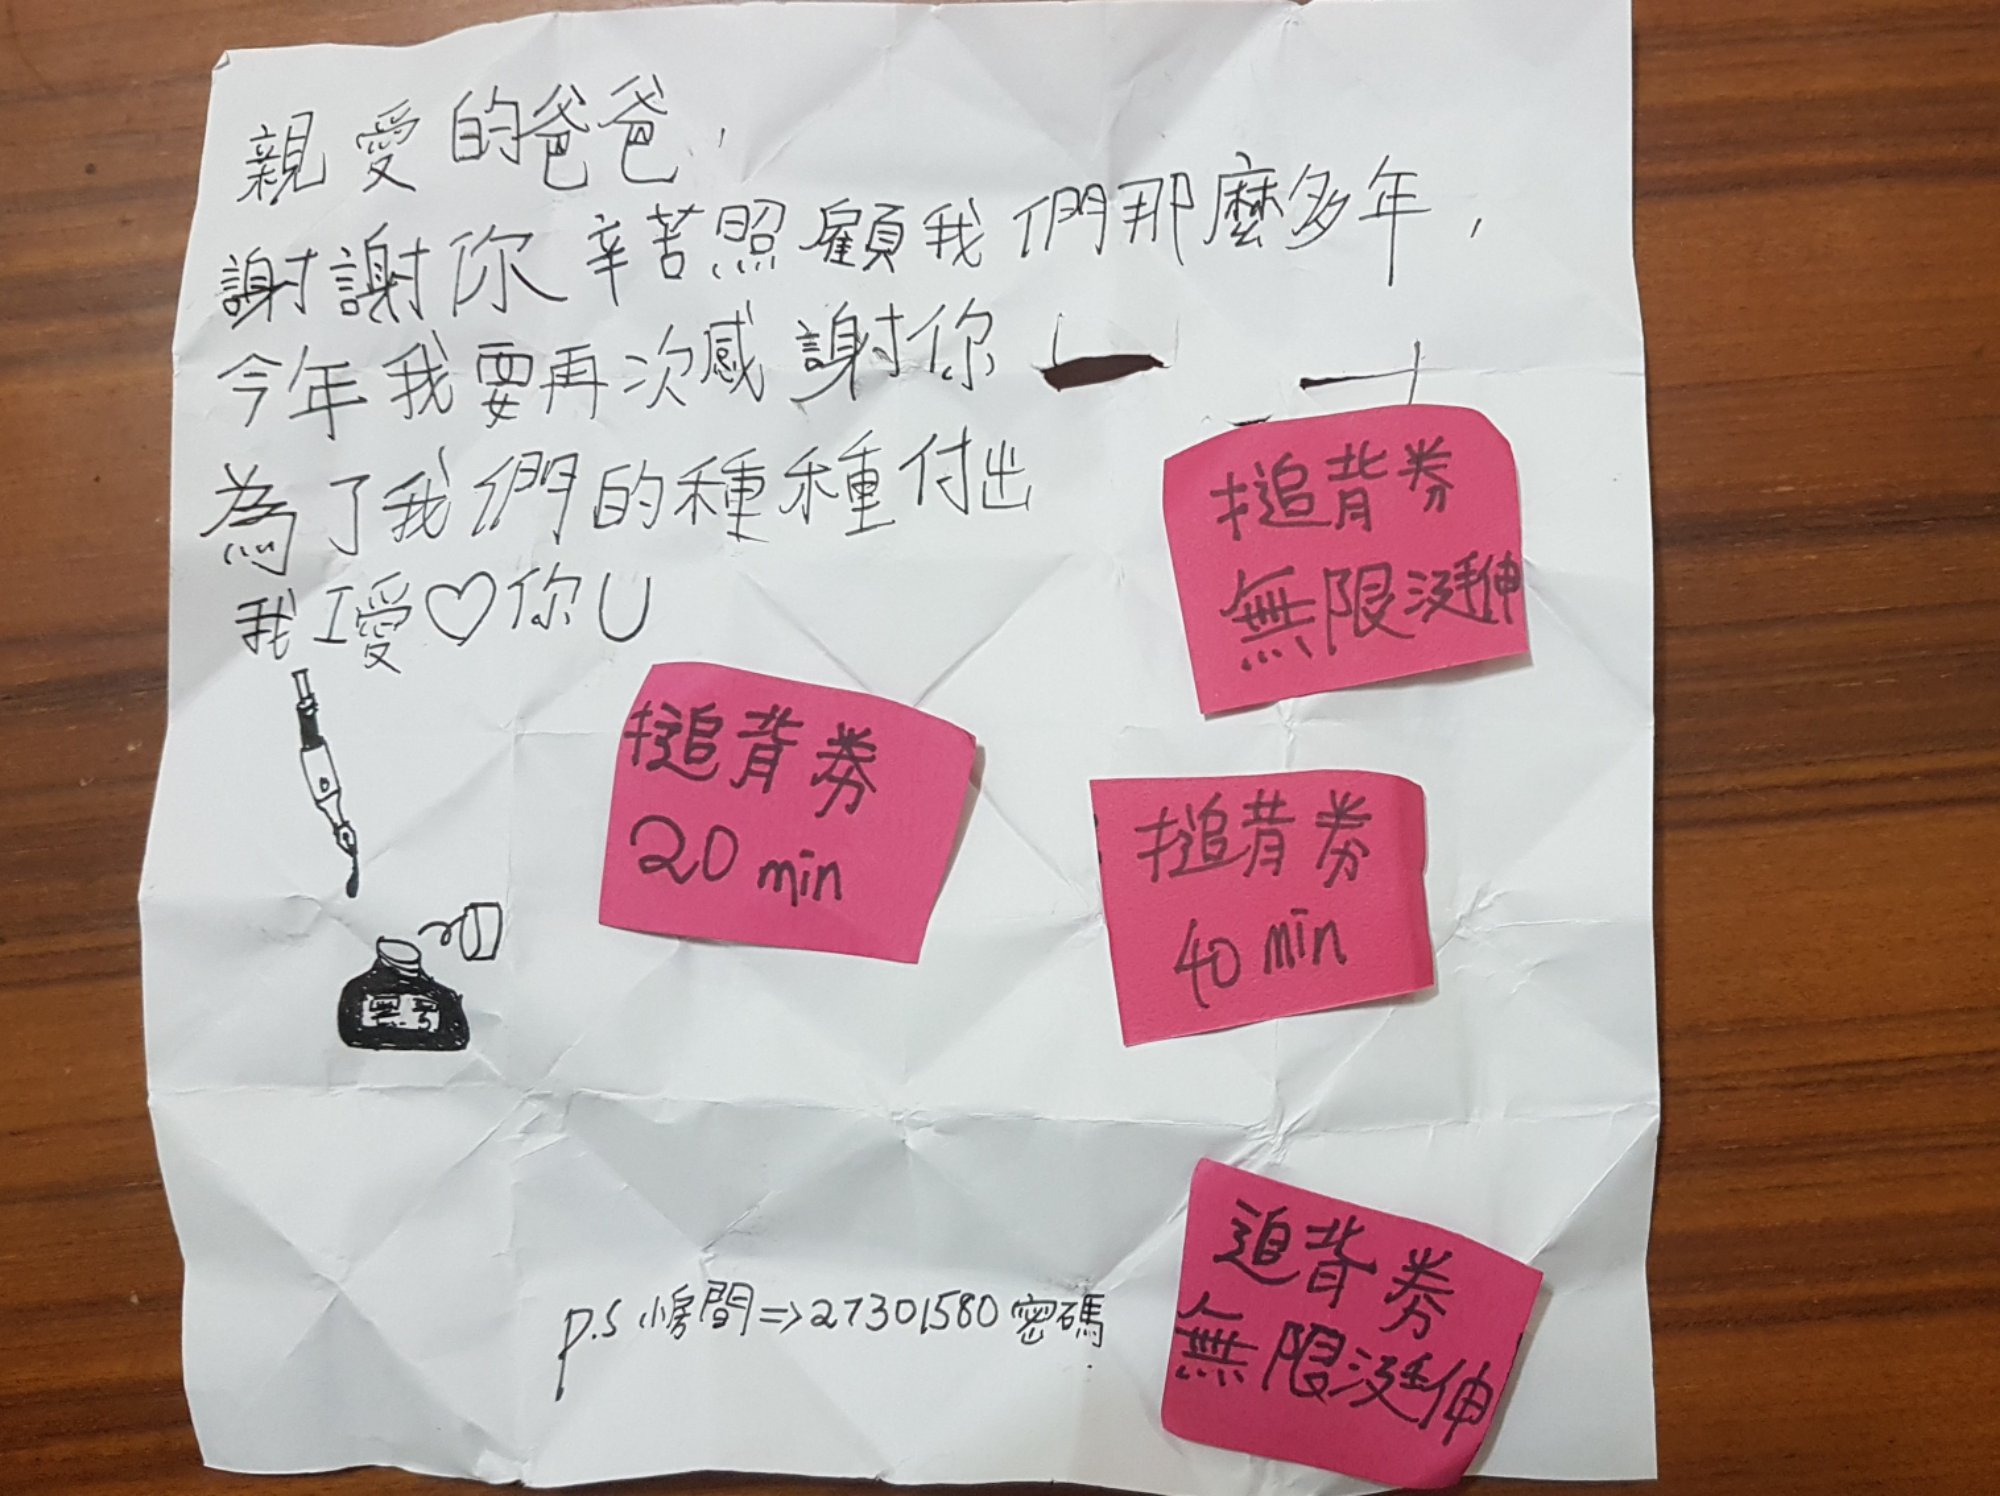 親愛的爸爸，
謝謝你辛苦照顧我們那麼多年，
今年我要再次感謝你
為了我們的種種付出
我I愛♡你U
搥背券
無限涎伸
搥背券
20 min
搥背券
40 min
P.S 小房間=>27301580密碼
追背券
無限涎伸